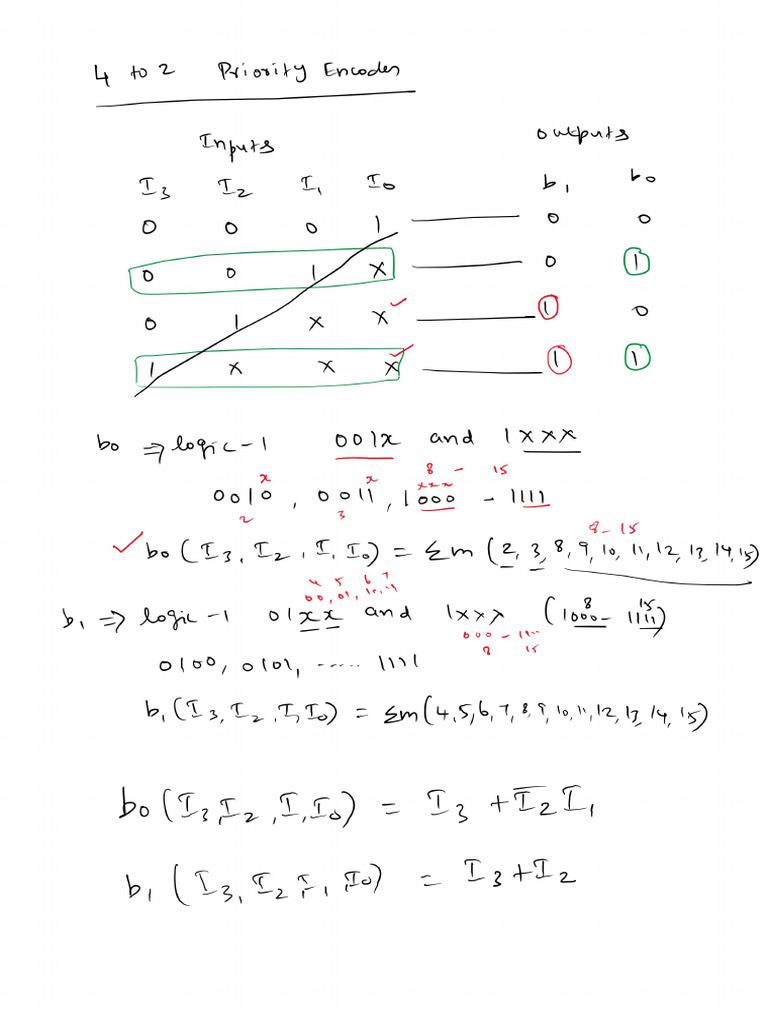 4 to 2 Priority Encoder
Inputs outputs
I3 I2 I1 I0 b1 b0
0 0 0 1 0 0
0 0 1 x 0 1
0 1 x x ✓ 1 0
1 x x x ✓ 1 1
b0 ⇒ logic-1 001x and 1xxx
x x 8 - 15
xxx
0010, 0011, 1000 - 1111
2 3
8-15
✓ b0(I3, I2, I1, I0) = Σm(2, 3, 8, 9, 10, 11, 12, 13, 14, 15)
4 5 6 7
00, 01, 10, 11
b1 ⇒ logic-1 01xx and 1xxx (1000 - 1111)
8 15
000 - 111
8 15
0100, 0101, ..... 1111
b1(I3, I2, I1, I0) = Σm(4, 5, 6, 7, 8, 9, 10, 11, 12, 13, 14, 15)
b0(I3, I2, I1, I0) = I3 + I̅2 I1
b1(I3, I2, I1, I0) = I3 + I2